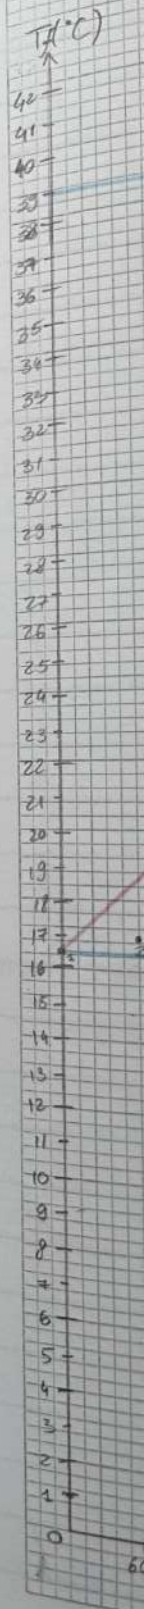 T(°C)
42
41
40
39
38
37
36
35
34
33
32
31
30
29
28
27
26
25
24
23
22
21
20
19
18
17
16
15
14
13
12
11
10
9
8
7
6
5
4
3
2
1
0
60